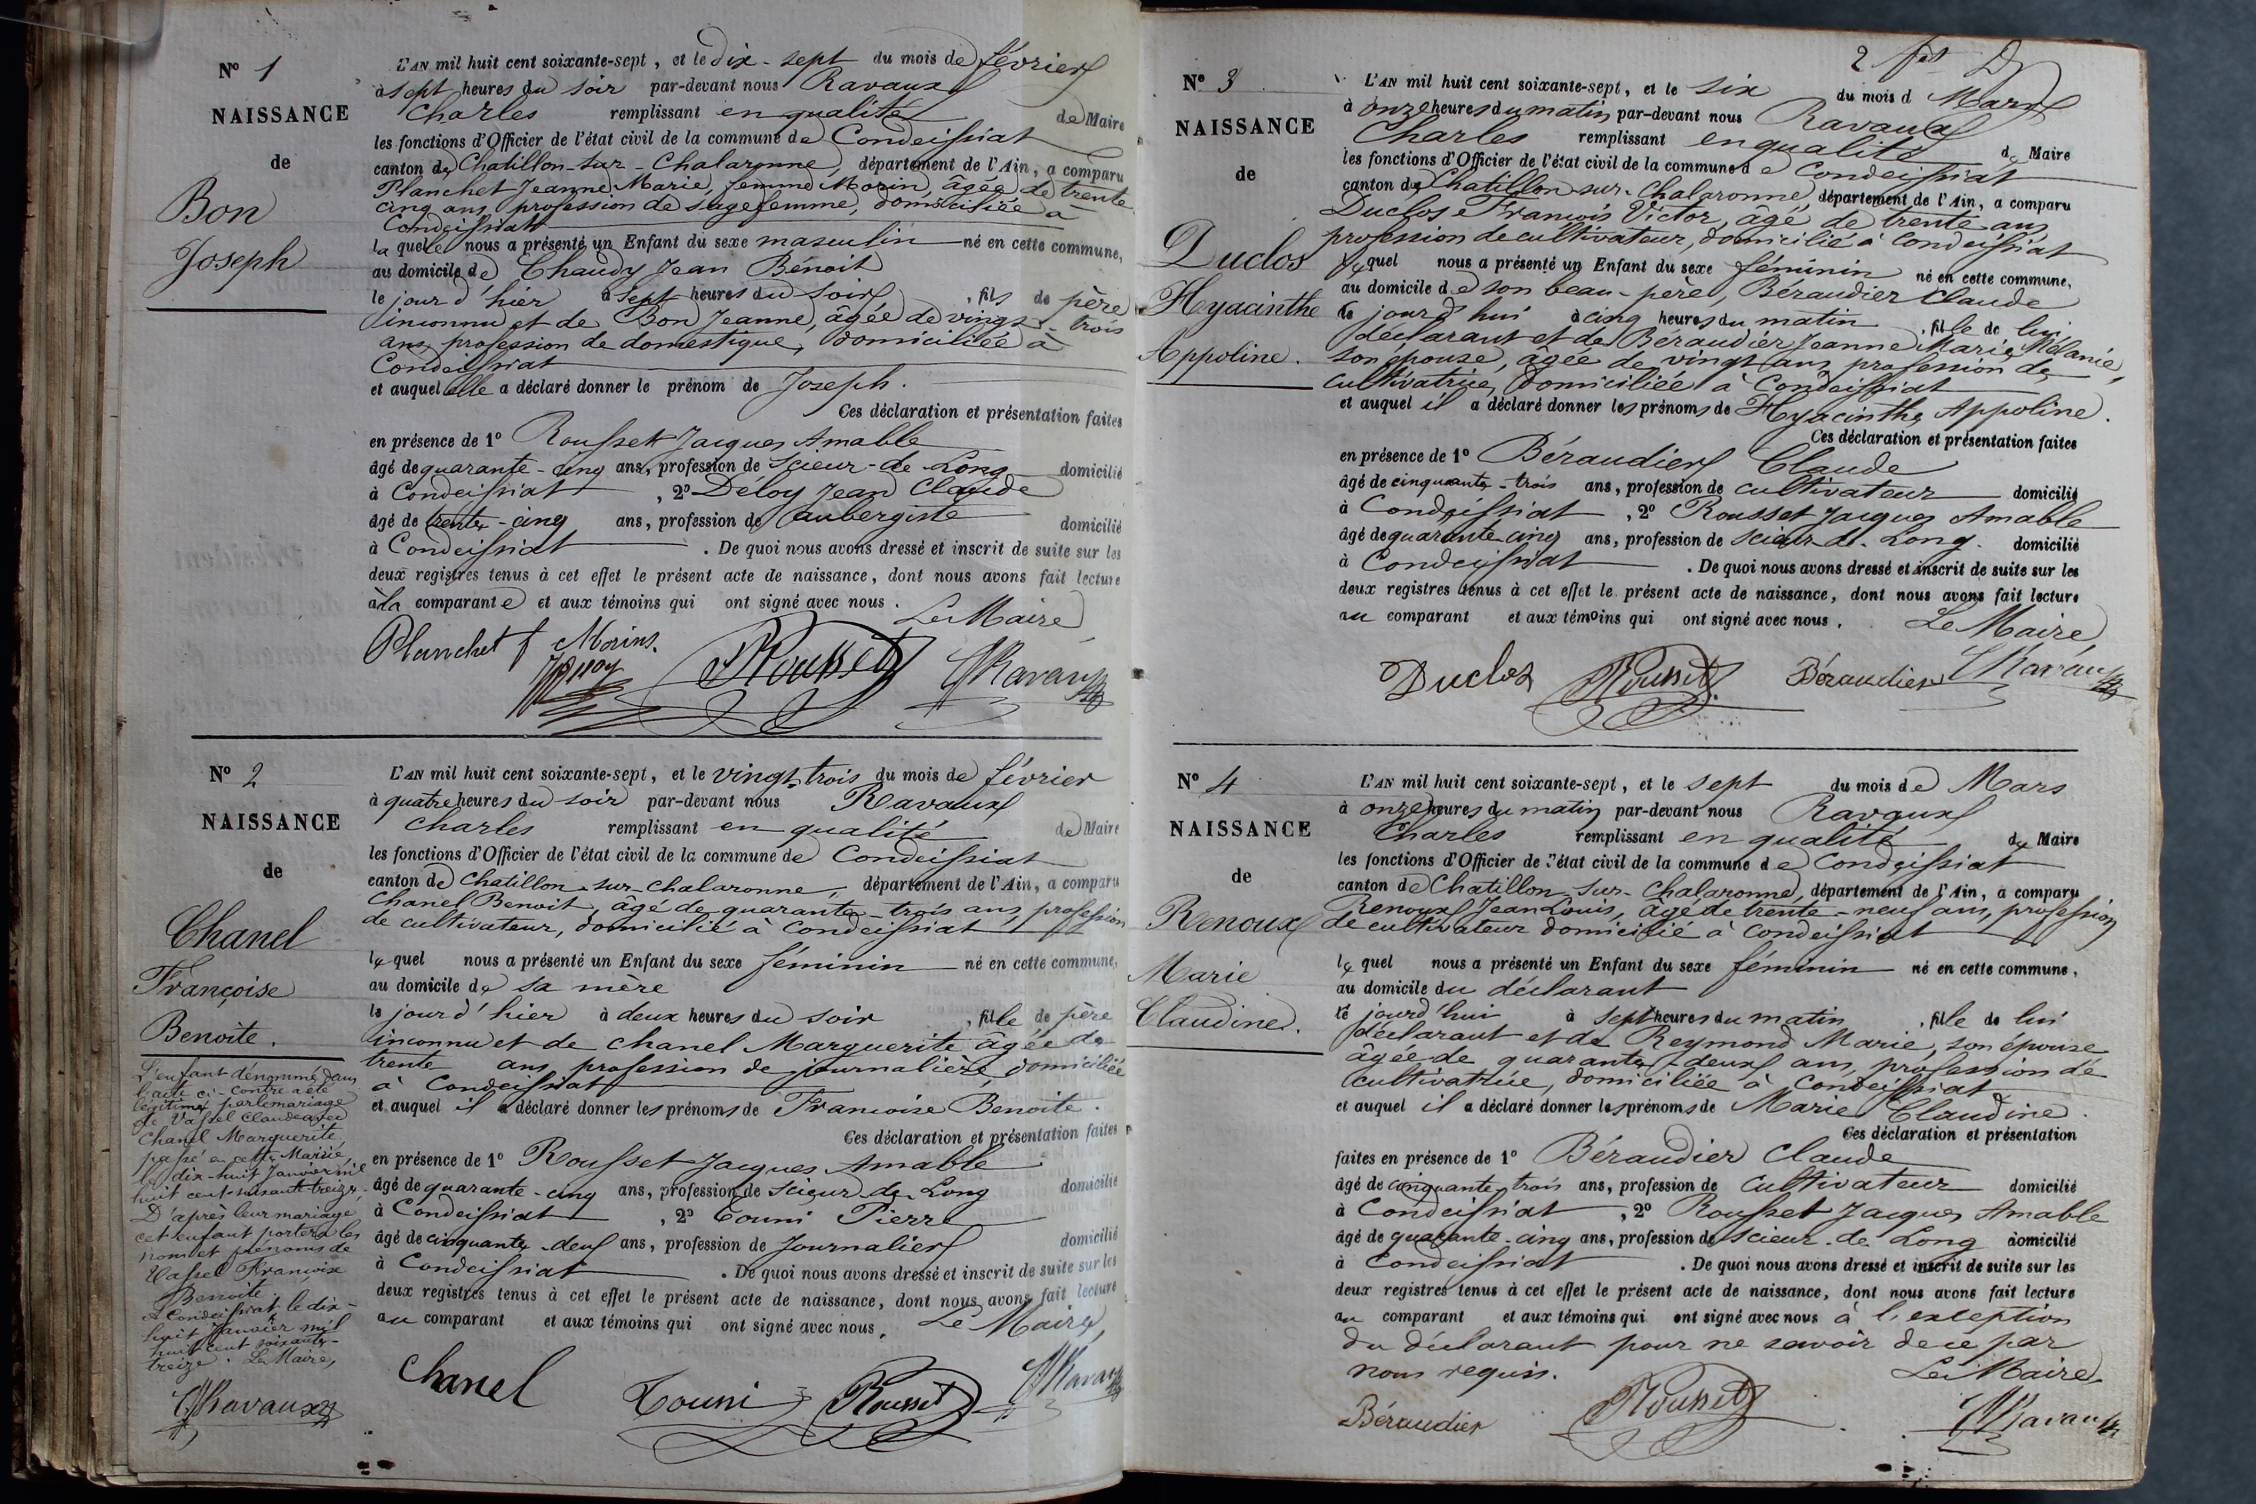 N° 1
NAISSANCE
de
Bon
Joseph
L'AN mil huit cent soixante-sept, et le dix-sept du mois de février
à sept heures du soir par-devant nous Ravaux
Charles remplissant en qualité de Maire
les fonctions d'Officier de l'état civil de la commune de Condeissiat
canton de Chatillon-sur-Chalaronne, département de l'Ain, a comparu
Planchet Jeanne Marie, femme Morin, âgée de trente
cinq ans, profession de sagefemme, domiciliée à
Condeissiat
la quelle nous a présenté un Enfant du sexe masculin né en cette commune,
au domicile de Chaudy Jean Bénoit
le jour d'hier à sept heures du soir, fils de père
inconnu et de Bon Jeanne, âgée de vingt-trois
ans, profession de domestique, domiciliée à
Condeissiat
et auquel elle a déclaré donner le prénom de Joseph.
Ces déclaration et présentation faites
en présence de 1° Rousset Jacques Amable
âgé de quarante-cinq ans, profession de Scieur-de-Long domicilié
à Condeissiat, 2° Déloy Jean Claude
âgé de trente-cinq ans, profession de aubergiste domicilié
à Condeissiat. De quoi nous avons dressé et inscrit de suite sur les
deux registres tenus à cet effet le présent acte de naissance, dont nous avons fait lecture
à la comparante et aux témoins qui ont signé avec nous.
Le Maire
Planchet f Morins. Rousset Ravaux
N° 2
NAISSANCE
de
Chanel
Françoise
Benoite.
L'enfant dénommé dans
l'acte ci-contre a été
légitimé par le mariage
de Vassel Claude avec
Chanel Marguerite,
passé en cette Mairie,
le dix-huit Janvier mil
huit cent-soixante-treize.
D'après leur mariage
cet enfant portera les
nom et prénoms de
Vassel Françoise
Benoite
A Condeissiat le dix-
huit Janvier mil
huit cent soixante-
treize. Le Maire,
Ravaux
L'AN mil huit cent soixante-sept, et le vingt-trois du mois de février
à quatre heures du soir par-devant nous Ravaux
Charles remplissant en qualité de Maire
les fonctions d'Officier de l'état civil de la commune de Condeissiat
canton de Chatillon-sur-Chalaronne, département de l'Ain, a comparu
Chanel Benoit, âgé de quarante-trois ans, profession
de cultivateur, domicilié à Condeissiat
le quel nous a présenté un Enfant du sexe féminin né en cette commune,
au domicile de sa mère
le jour d'hier à deux heures du soir, fille de père
inconnu et de Chanel Marguerite âgée de
trente ans, profession de journalière, domiciliée
à Condeissiat
et auquel il a déclaré donner les prénoms de Francoise Benoite.
Ces déclaration et présentation faites
en présence de 1° Rousset Jacques Amable
âgé de quarante-cinq ans, profession de Scieur-de-Long domicilié
à Condeissiat, 2° Touni Pierre
âgé de cinquante-deux ans, profession de Journalier domicilié
à Condeissiat. De quoi nous avons dressé et inscrit de suite sur les
deux registres tenus à cet effet le présent acte de naissance, dont nous avons fait lecture
au comparant et aux témoins qui ont signé avec nous. Le Maire,
Chanel Touni Rousset Ravaux
2
N° 3
NAISSANCE
de
Duclos
Hyacinthe
Appoline.
L'AN mil huit cent soixante-sept, et le six du mois d Mars
à onze heures du matin par-devant nous Ravaux
Charles remplissant en qualité de Maire
les fonctions d'Officier de l'état civil de la commune de Condeissiat
canton de Chatillon-sur-Chalaronne, département de l'Ain, a comparu
Duclos François Victor, âgé de trente ans,
profession de cultivateur, domicilié à Condeissiat
le quel nous a présenté un Enfant du sexe féminin né en cette commune,
au domicile de son beau-père, Béraudier Claude
le jourd'hui à cinq heures du matin, fille de lui
déclarant et de Béraudier Jeanne Marie Mélanie,
son épouse, âgée de vingt ans, profession de
cultivatrice, domiciliée à Condeissiat
et auquel il a déclaré donner les prénoms de Hyacinthe Appoline.
Ces déclaration et présentation faites
en présence de 1° Béraudier Claude
âgé de cinquante-trois ans, profession de cultivateur domicilié
à Condeissiat, 2° Rousset Jacques Amable
âgé de quarante-cinq ans, profession de Scieur-de-Long. domicilié
à Condeissiat. De quoi nous avons dressé et inscrit de suite sur les
deux registres tenus à cet effet le présent acte de naissance, dont nous avons fait lecture
au comparant et aux témoins qui ont signé avec nous. Le Maire,
Duclos Rousset Béraudier Ravaux
N° 4
NAISSANCE
de
Renoux
Marie
Claudine.
L'AN mil huit cent soixante-sept, et le sept du mois de Mars
à onze heures du matin par-devant nous Ravaux
Charles remplissant en qualité de Maire
les fonctions d'Officier de l'état civil de la commune de Condeissiat
canton de Chatillon-sur-Chalaronne, département de l'Ain, a comparu
Renoux Jean Louis, âgé de trente-neuf ans, profession
de cultivateur domicilié à Condeissiat
le quel nous a présenté un Enfant du sexe féminin né en cette commune,
au domicile du déclarant
le jourd'hui à sept heures du matin, fille de lui
déclarant et de Reymond Marie, son épouse
âgée de quarante-deux ans, profession de
cultivatrice, domiciliée à Condeissiat
et auquel il a déclaré donner les prénoms de Marie Claudine.
Ces déclaration et présentation
faites en présence de 1° Béraudier Claude
âgé de cinquante-trois ans, profession de cultivateur domicilié
à Condeissiat, 2° Rousset Jacques Amable
âgé de quarante-cinq ans, profession de Scieur-de-Long domicilié
à Condeissiat. De quoi nous avons dressé et inscrit de suite sur les
deux registres tenus à cet effet le présent acte de naissance, dont nous avons fait lecture
au comparant et aux témoins qui ont signé avec nous à l'exception
du déclarant pour ne savoir de ce par
nous requis. Le Maire
Béraudier Rousset Ravaux